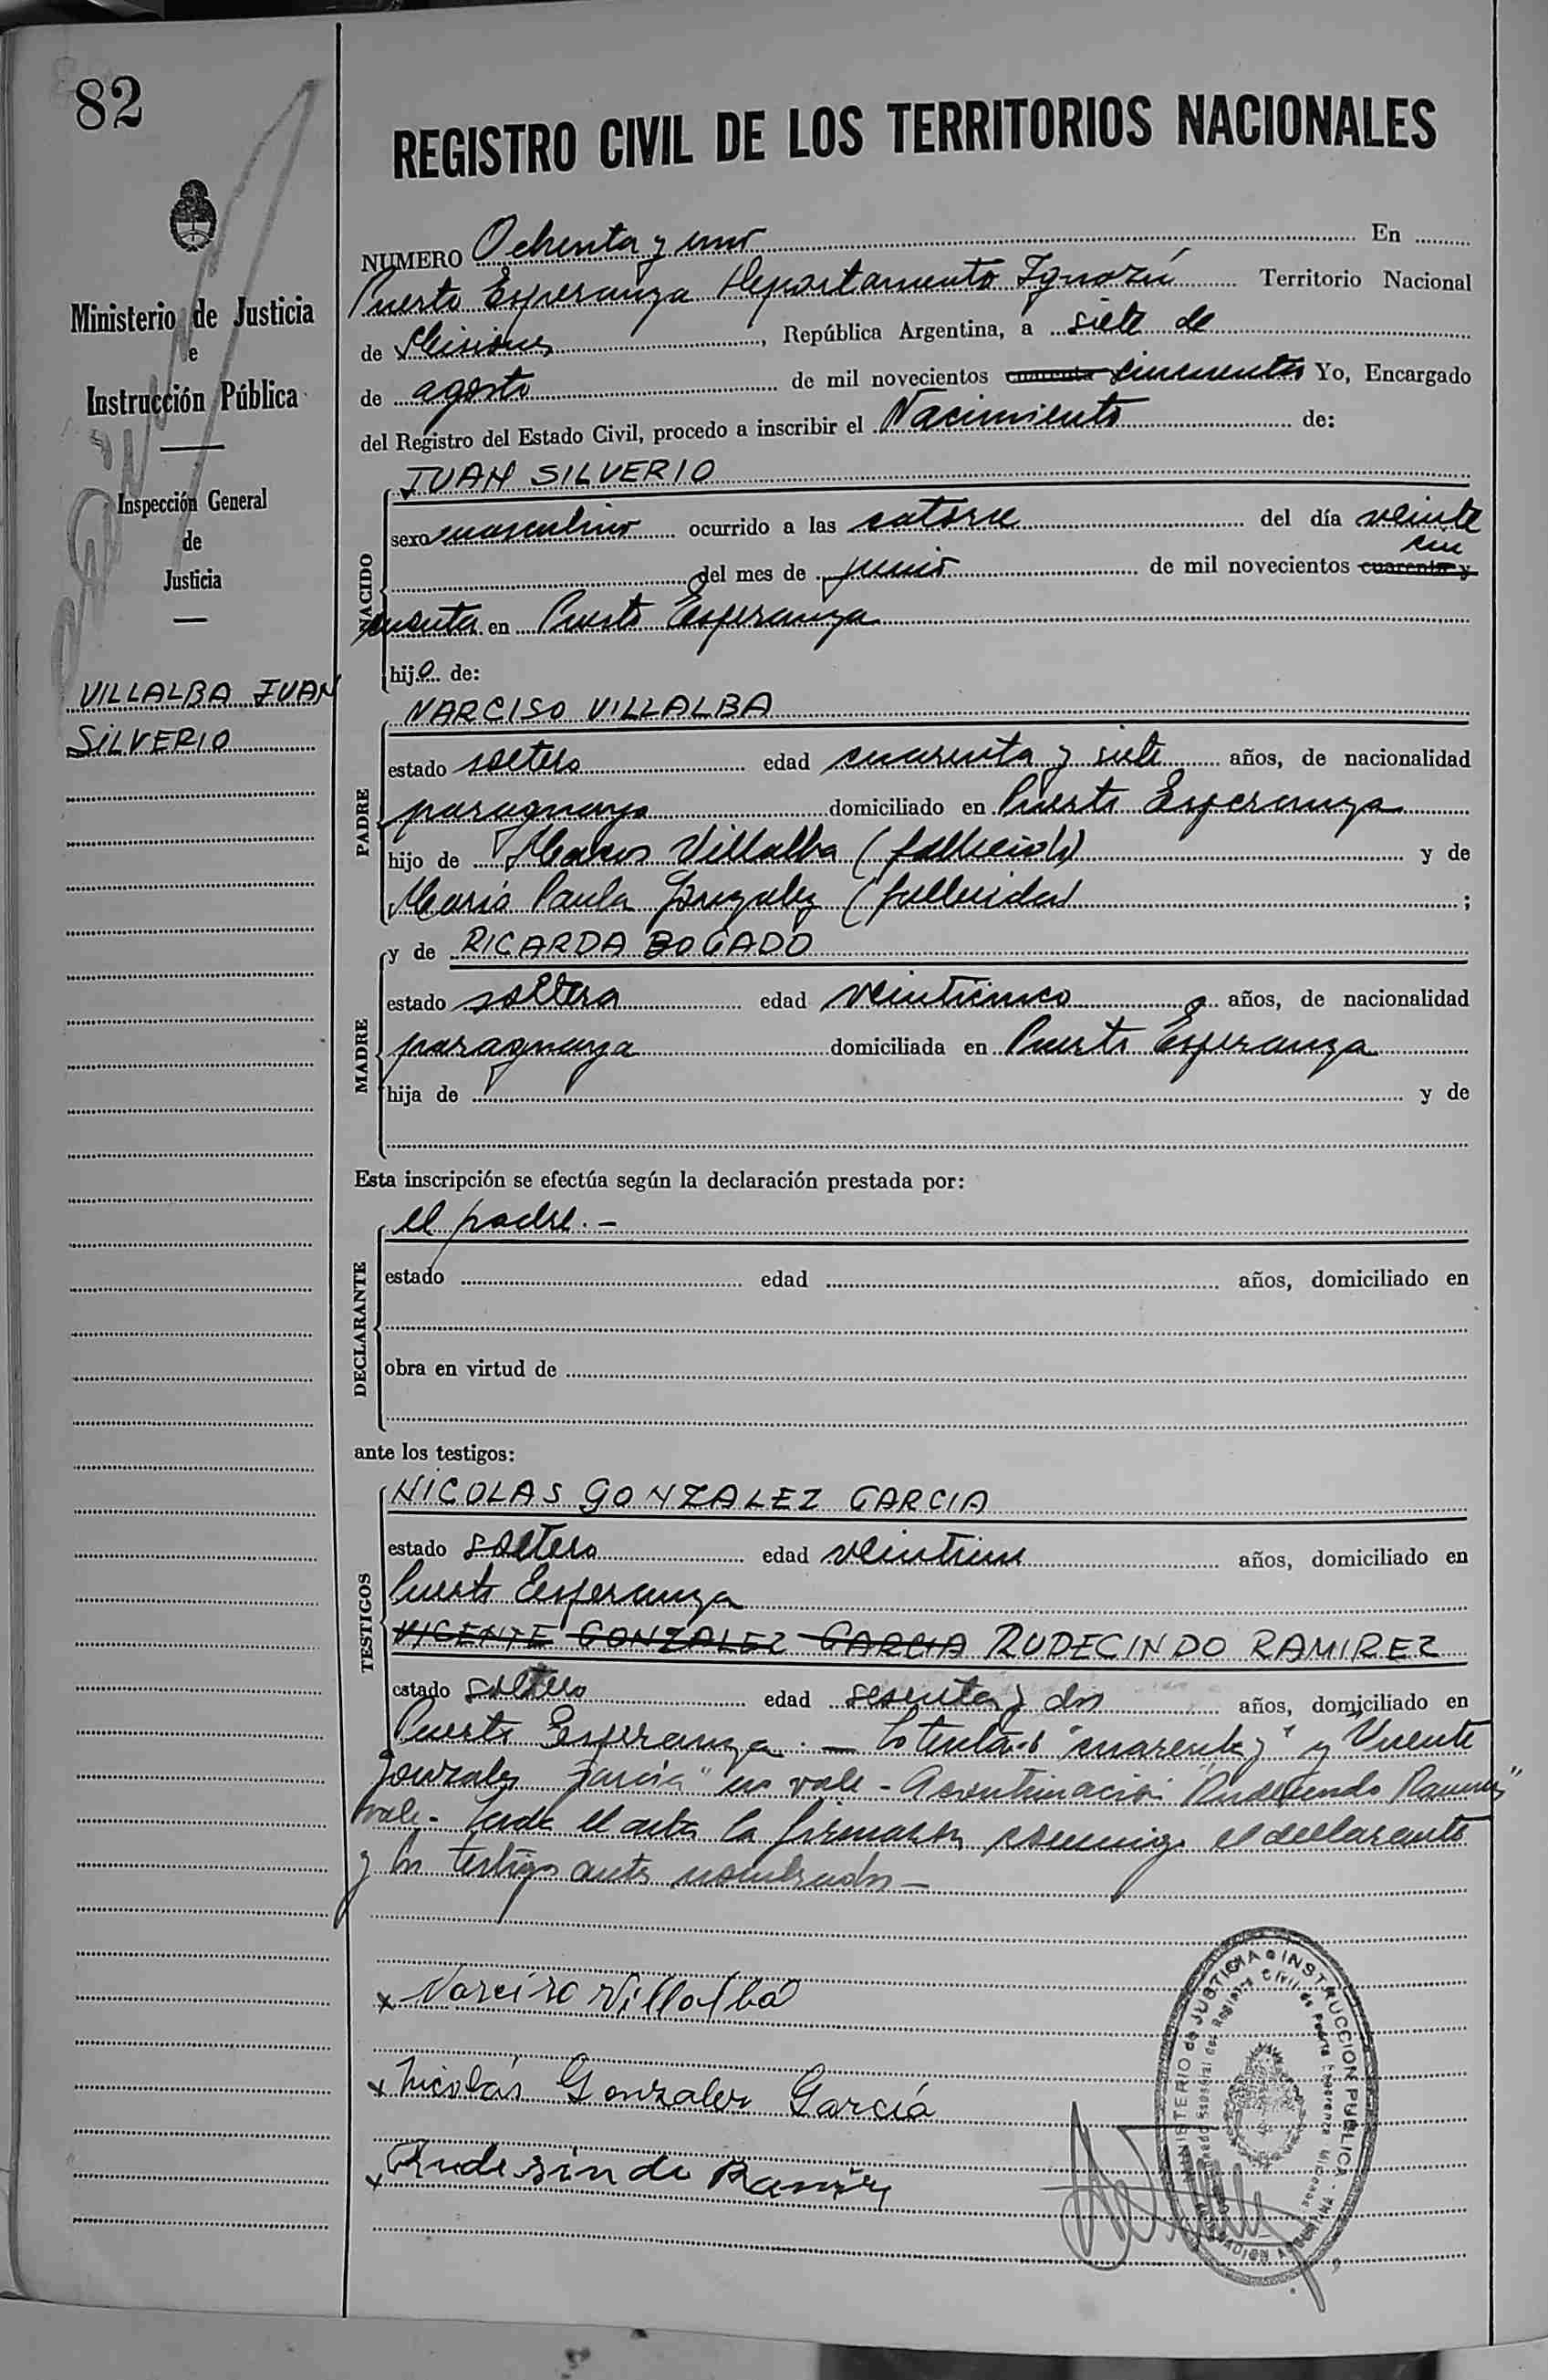 82
REGISTRO CIVIL DE LOS TERRITORIOS NACIONALES
Ministerio de Justicia
e
Instrucción Pública
Inspección General
de
Justicia
VILLALBA JUAN
SILVERIO
NUMERO Ochenta y uno En
Puerto Esperanza Departamento Iguazú Territorio Nacional
de Misiones, República Argentina, a siete de
de agosto de mil novecientos cuarenta cincuenta Yo, Encargado
del Registro del Estado Civil, procedo a inscribir el Nacimiento de:
NACIDO
JUAN SILVERIO
sexo masculino ocurrido a las catorce del día veinte
cin
del mes de junio de mil novecientos cuarenta y
cuenta en Puerto Esperanza
hijo de:
PADRE
NARCISO VILLALBA
estado soltero edad cuarenta y siete años, de nacionalidad
paraguaya domiciliado en Puerto Esperanza
hijo de Villalba (fallecido) y de
María Paula Gonzalez (fallecida) ;
MADRE
y de RICARDA BOGADO
estado soltera edad veinticinco años, de nacionalidad
paraguaya domiciliada en Puerto Esperanza
hija de y de
Esta inscripción se efectúa según la declaración prestada por:
DECLARANTE
el padre.-
estado edad años, domiciliado en
obra en virtud de
ante los testigos:
TESTIGOS
NICOLAS GONZALEZ GARCIA
estado soltero edad años, domiciliado en
Puerto Esperanza
VICENTE GONZALEZ GARCIA RUDECINDO RAMIREZ
estado soltero edad sesenta y dos años, domiciliado en
Puerto Esperanza.- Lo "cuarenta y" y "Vicente
Gonzalez Garcia" no vale - A continuación "Rudecindo Ramirez"
vale.- Leida el acta la firmaron conmigo el declarante
y los testigos antes nombrados-
x Narciso Villalba
x Nicolás Gonzalez García
x Rudesindo Ramirez
MINISTERIO de JUSTICIA e INSTRUCCION PUBLICA